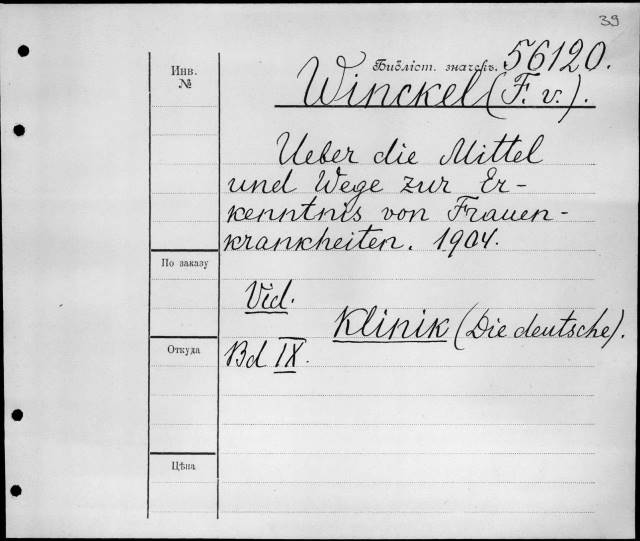 39
Инв.
№
Библіст. значекъ. 56120.
Winckel (F. v.).
Ueber die Mittel
und Wege zur Er-
kenntnis von Frauen-
krankheiten. 1904.
По заказу
Vid.
Klinik (Die deutsche).
Откуда
Bd IX.
Цѣна